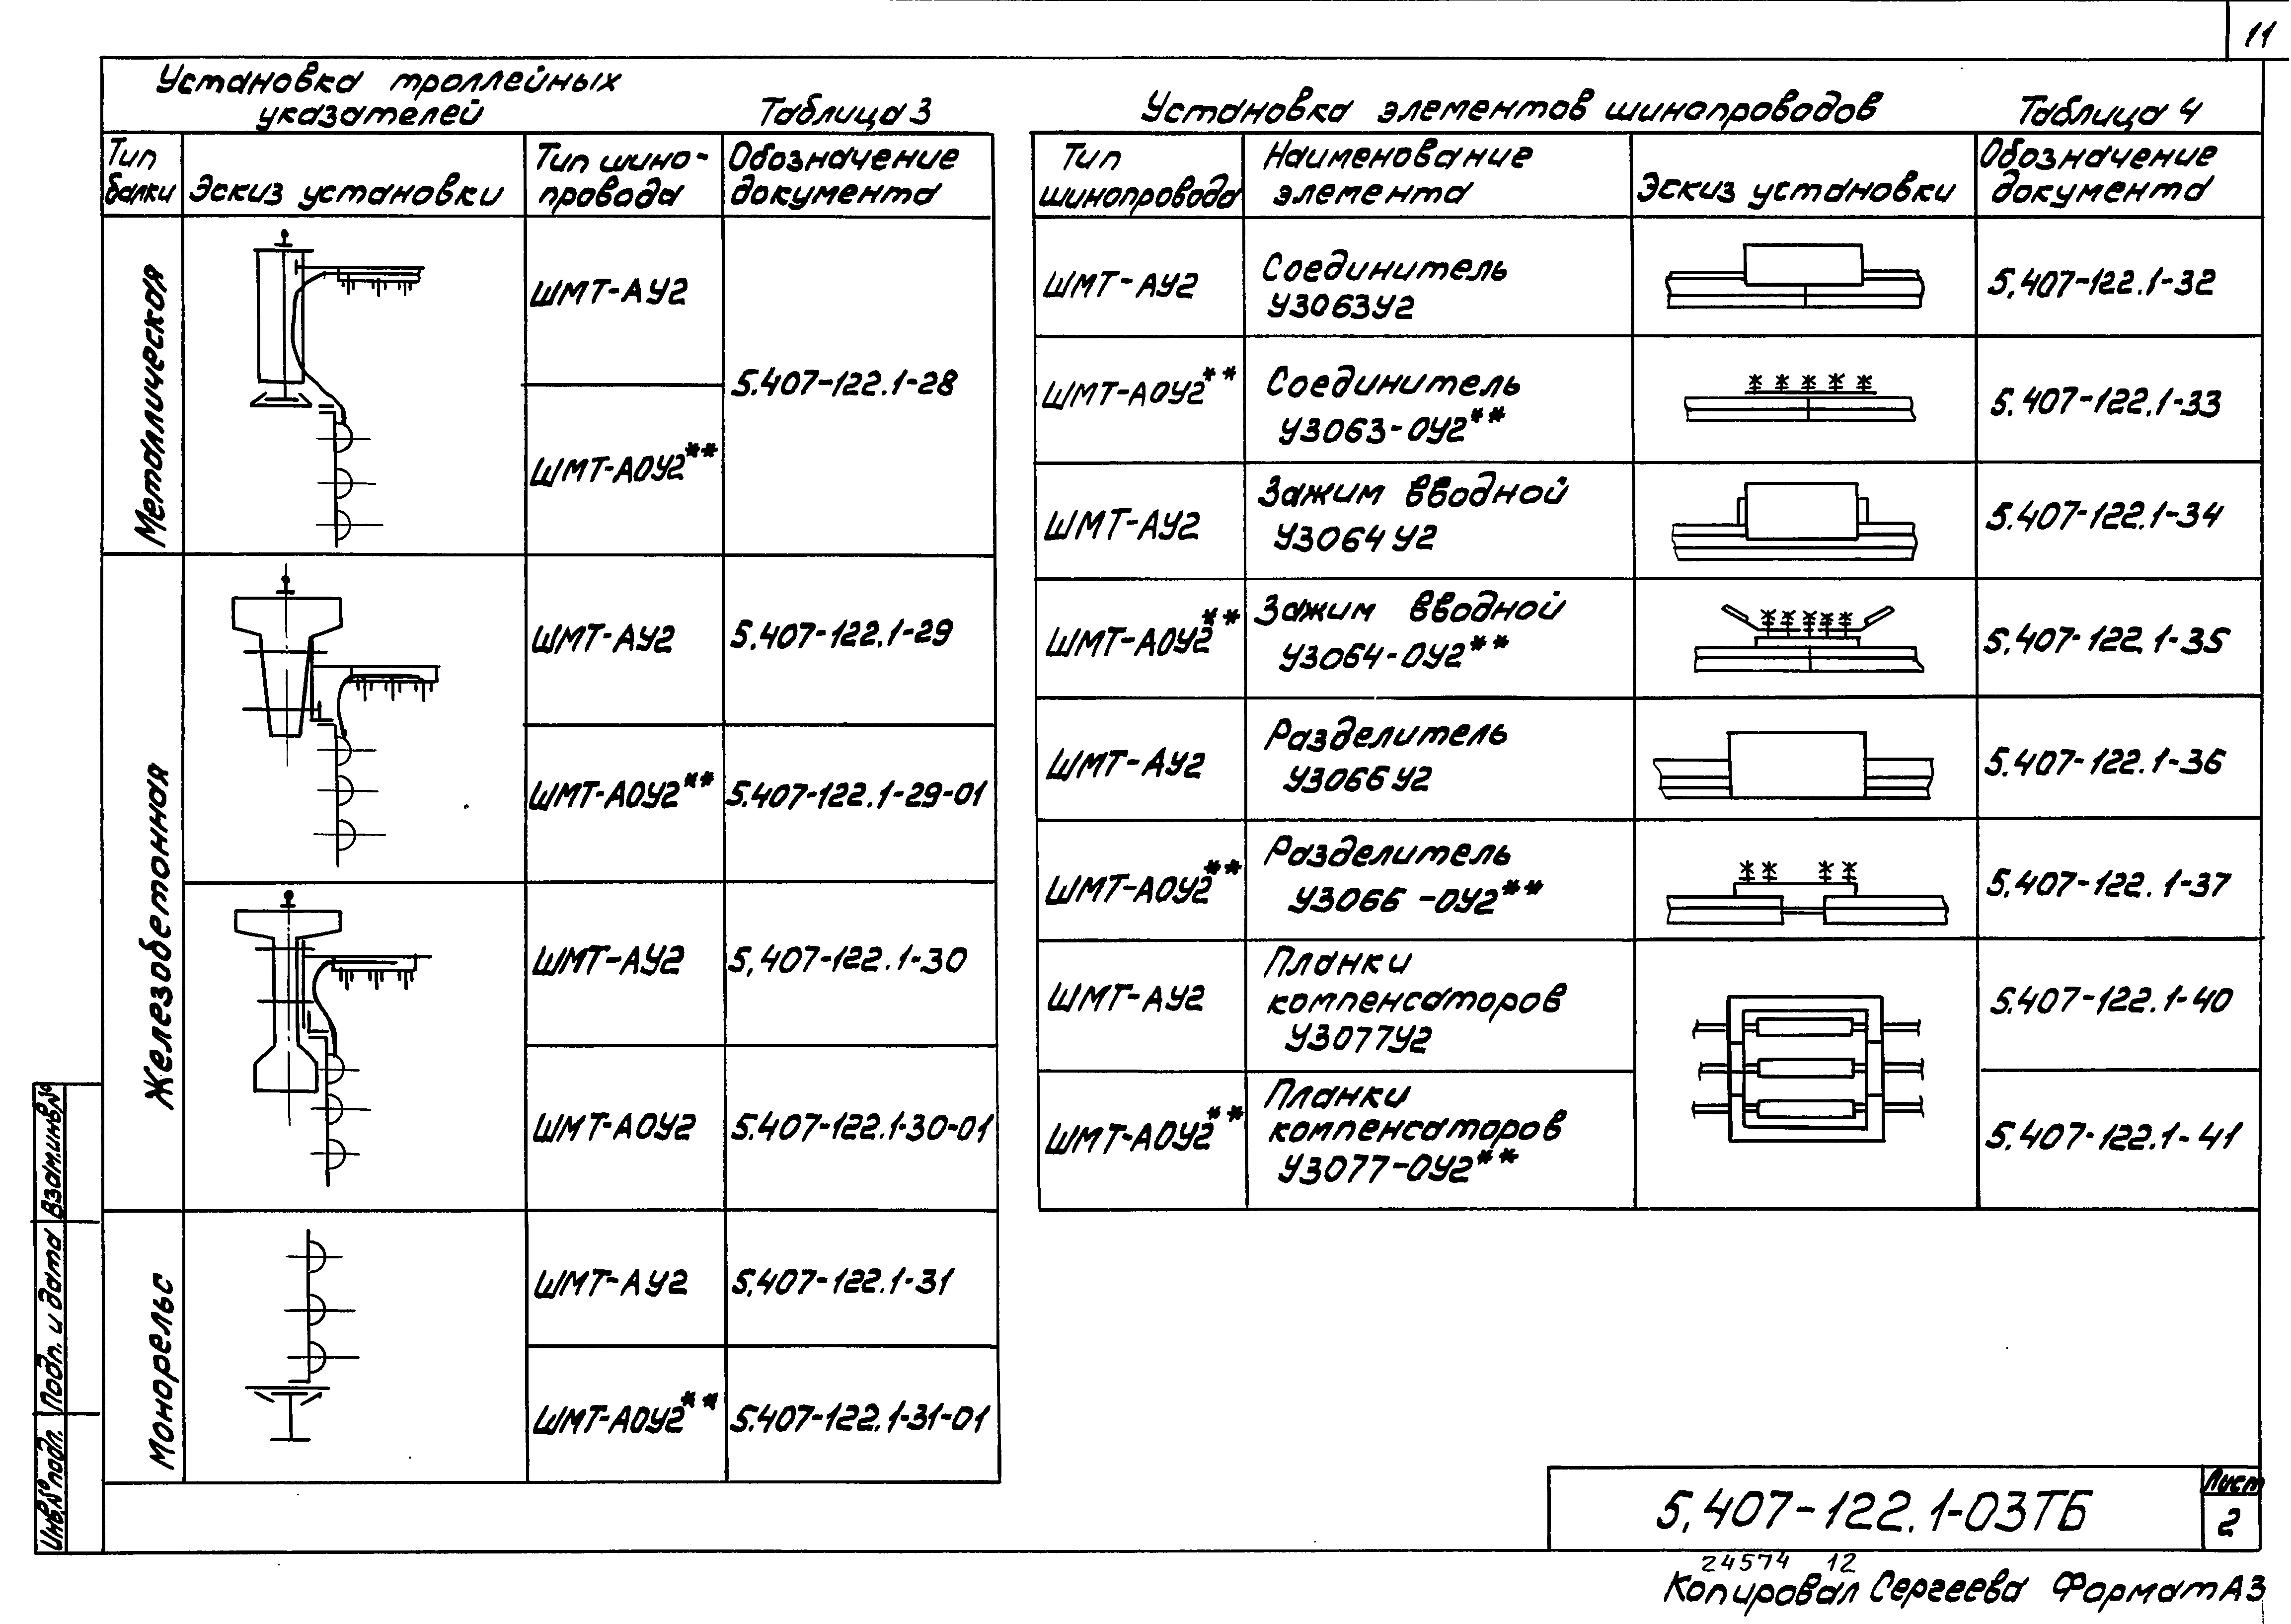 11
Установка троллейных
указателей
Таблица 3
Тип
балки
Эскиз установки
Тип шино-
провода
Обозначение
документа
Металлическая
ШМТ-АУ2
5.407-122.1-28
ШМТ-АОУ2**
Железобетонная
ШМТ-АУ2
5.407-122.1-29
ШМТ-АОУ2**
5.407-122.1-29-01
ШМТ-АУ2
5.407-122.1-30
ШМТ-АОУ2
5.407-122.1-30-01
Монорельс
ШМТ-АУ2
5.407-122.1-31
ШМТ-АОУ2**
5.407-122.1-31-01
Установка элементов шинопроводов
Таблица 4
Тип
шинопровода
Наименование
элемента
Эскиз установки
Обозначение
документа
ШМТ-АУ2
Соединитель
У3063У2
5.407-122.1-32
ШМТ-АОУ2**
Соединитель
У3063-ОУ2**
5.407-122.1-33
ШМТ-АУ2
Зажим вводной
У3064У2
5.407-122.1-34
ШМТ-АОУ2**
Зажим вводной
У3064-ОУ2**
5.407-122.1-35
ШМТ-АУ2
Разделитель
У3066У2
5.407-122.1-36
ШМТ-АОУ2**
Разделитель
У3066-ОУ2**
5.407-122.1-37
ШМТ-АУ2
Планки
компенсаторов
У3077У2
5.407-122.1-40
ШМТ-АОУ2**
Планки
компенсаторов
У3077-ОУ2**
5.407-122.1-41
Взам.инв.№
Подп. и дата
Инв.№подл.
5.407-122.1-03ТБ
Лист
2
24574 12
Копировал Сергеева Формат А3